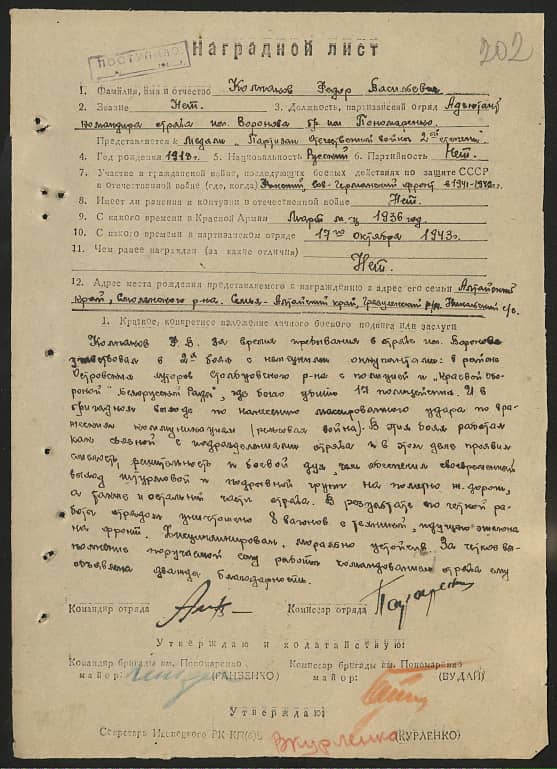 ПОСТУПИЛО
Наградной лист
202
1. Фамилия, имя и отчество Колпаков Федор Васильевич
2. Звание Нет. 3. Должность, партизанский отряд Адъютант
командира отряда им. Воронова бр. им. Пономаренко.
Представляется к Медали "Партизан Отечественной войны" 2ой степени
4. Год рождения 1913 г. 5. Национальность Русский 6. Партийность Нет.
7. Участие в гражданской войне, последующих боевых действиях по защите СССР
в отечественной войне (где, когда) Финский, Сов-Германский фронт в 1941-1942 г.
8. Имеет ли ранения и контузии в отечественной войне Нет.
9. С какого времени в Красной Армии Март м-ц 1936 год.
10. С какого времени в партизанском отряде 17го октября 1943 г.
11. Чем ранее награжден (за какие отличия)
Нет.
12. Адрес места рождения представляемого к награждению и адрес его семьи Алтайский
край, Смоленского р-на. Семья - Алтайский край, р-н, с/с.
1. Краткое, конкретное изложение личного боевого подвига или заслуги
Колпаков Ф. В. за время пребывания в отряде им. Воронова
участвовал в 2х боях с немецкими оккупантами: в районе
хуторов Столбцовского р-на с полицией и "Краевой обо-
роной" "Белорусской Рады", где было убито 17 полицейских. И в
бригадном выходе по нанесению массированного удара по вра-
жеским коммуникациям (рельсовая война). В этих боях работал
как связной с подразделениями отряда и в этом деле проявил
смелость, решительность и боевой дух, чем обеспечил своевременный
выход штурмовой и подрывной групп на полотно ж. дороги,
а также и остальной части отряда. В результате его чёткой ра-
боты отрядом уничтожено 8 вагонов с техникой, идущего эшелона
на фронт. Дисциплинирован, морально устойчив. За чёткое вы-
полнение поручаемой ему работы командованием отряда ему
объявлена дважды благодарность.
Командир отряда Комиссар отряда
Утверждаю и ходатайствую:
Командир бригады им. Пономаренко Комиссар бригады им. Пономаренко
майор: (ГАНЗЕНКО) майор: (БУДАЙ)
Утверждаю:
Секретарь Ивенецкого РК КП(б)Б Вжурленко (КУРЛЕНКО)